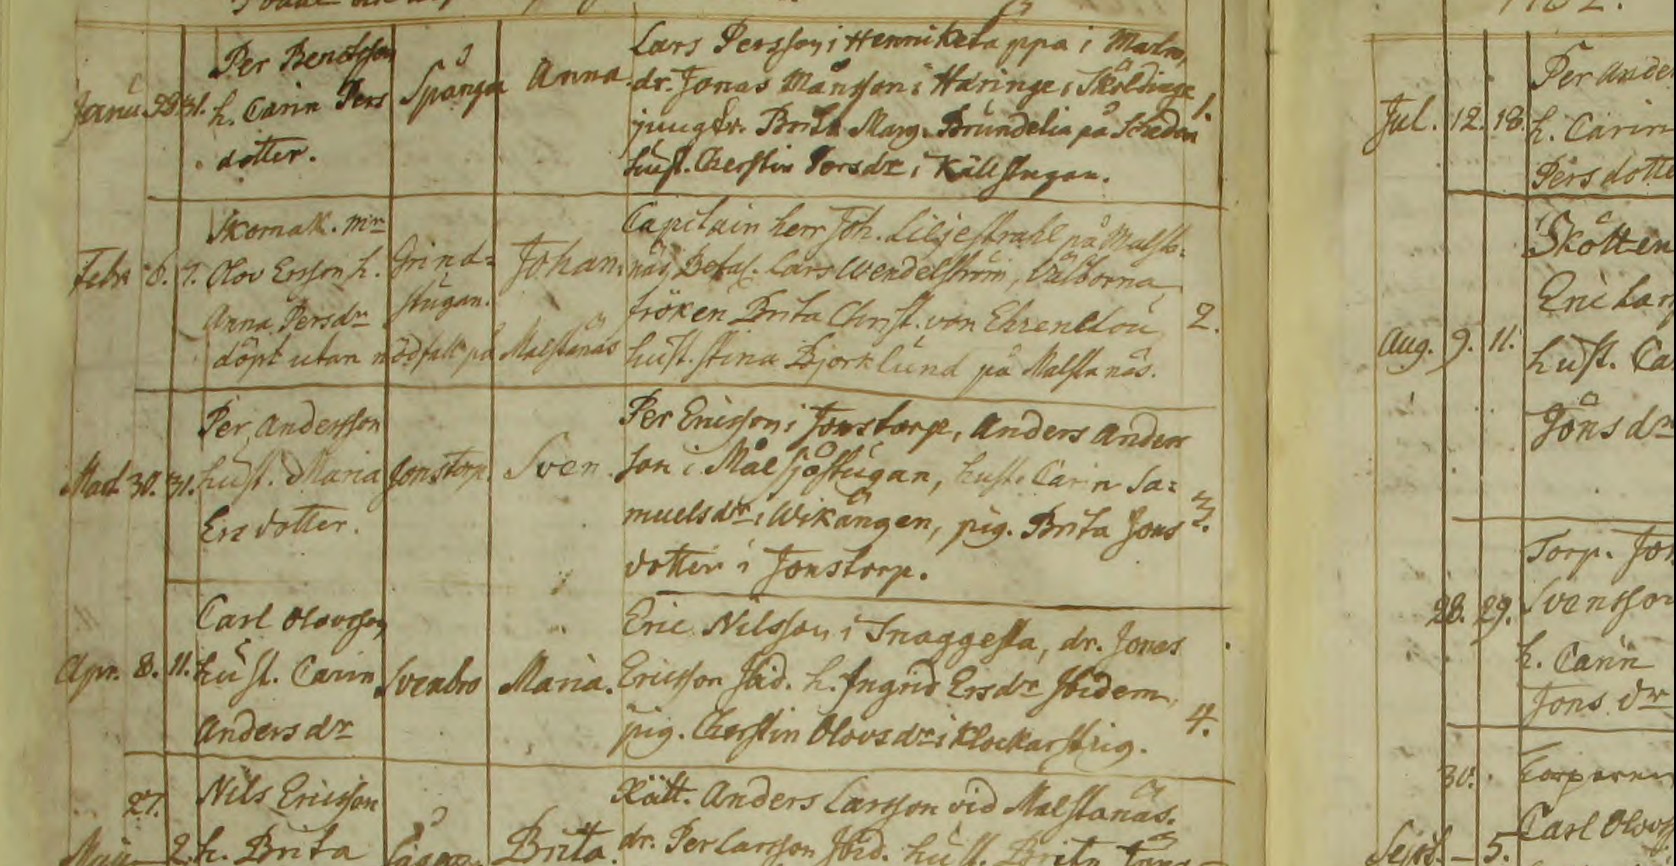 Per Bencksson
Janu. 29. 31. h. Carin Pers
dotter.
Spånga
Anna
Lars Persson i Henniketappa i Malm,
dr. Jonas Månsson i Häringe i Sköldinge
jungfr. Brita Marg. Brundelia på Schedevi
hust. Cherstin Torsdr i Källstugan.
1.
Skomak. m:r
Febr. 6. 7. Olov Ersson h.
Anna Persdr
Grind-
stugan.
Johan.
döpt utan nödfall på Malstanäs
Capitain herr Joh. Liljestrahl på Malsta-
näs, Befal. Lars Wendelström, Valborna
fröken Brita Christ. von Ehrenclou
hust. Stina Bjorklund på Malstanäs.
2.
Per Andersson
Mart. 30. 31. hust. Maria
Ersdotter.
Jonstorp.
Sven.
Per Ericsson i Jonstorp, Anders Anders
son i Målsjöstugan, hust. Carin Sa-
muelsdr i Wikängen, pig. Brita Jons
dotter i Jonstorp.
3.
Carl Olovsson
Apr. 8. 11. hust. Carin
Andersdr
Svenbro
Maria.
Eric Nilsson i Snaggesta, dr. Jonas
Ericsson Ibid. h. Ingrid Ersdr Ibidem,
pig. Cherstin Olovsdr i Klockarstig.
4.
27. Nils Ericsson
Maji 2. h. Brita
Brita.
Rätt. Anders Larsson vid Malstanäs.
dr. Per Larsson Ibid. hust. Brita
Per Ande
Jul. 12. 18. h. Carin
Persdotte
Skötten
Eric Lar
Aug. 9. 11. hust. Ca
Jönsdr
Torp. Jo
28. 29. Svensson
h. Carin
Jonsdr
30. Torparen
Sept. 5. Carl Olovs